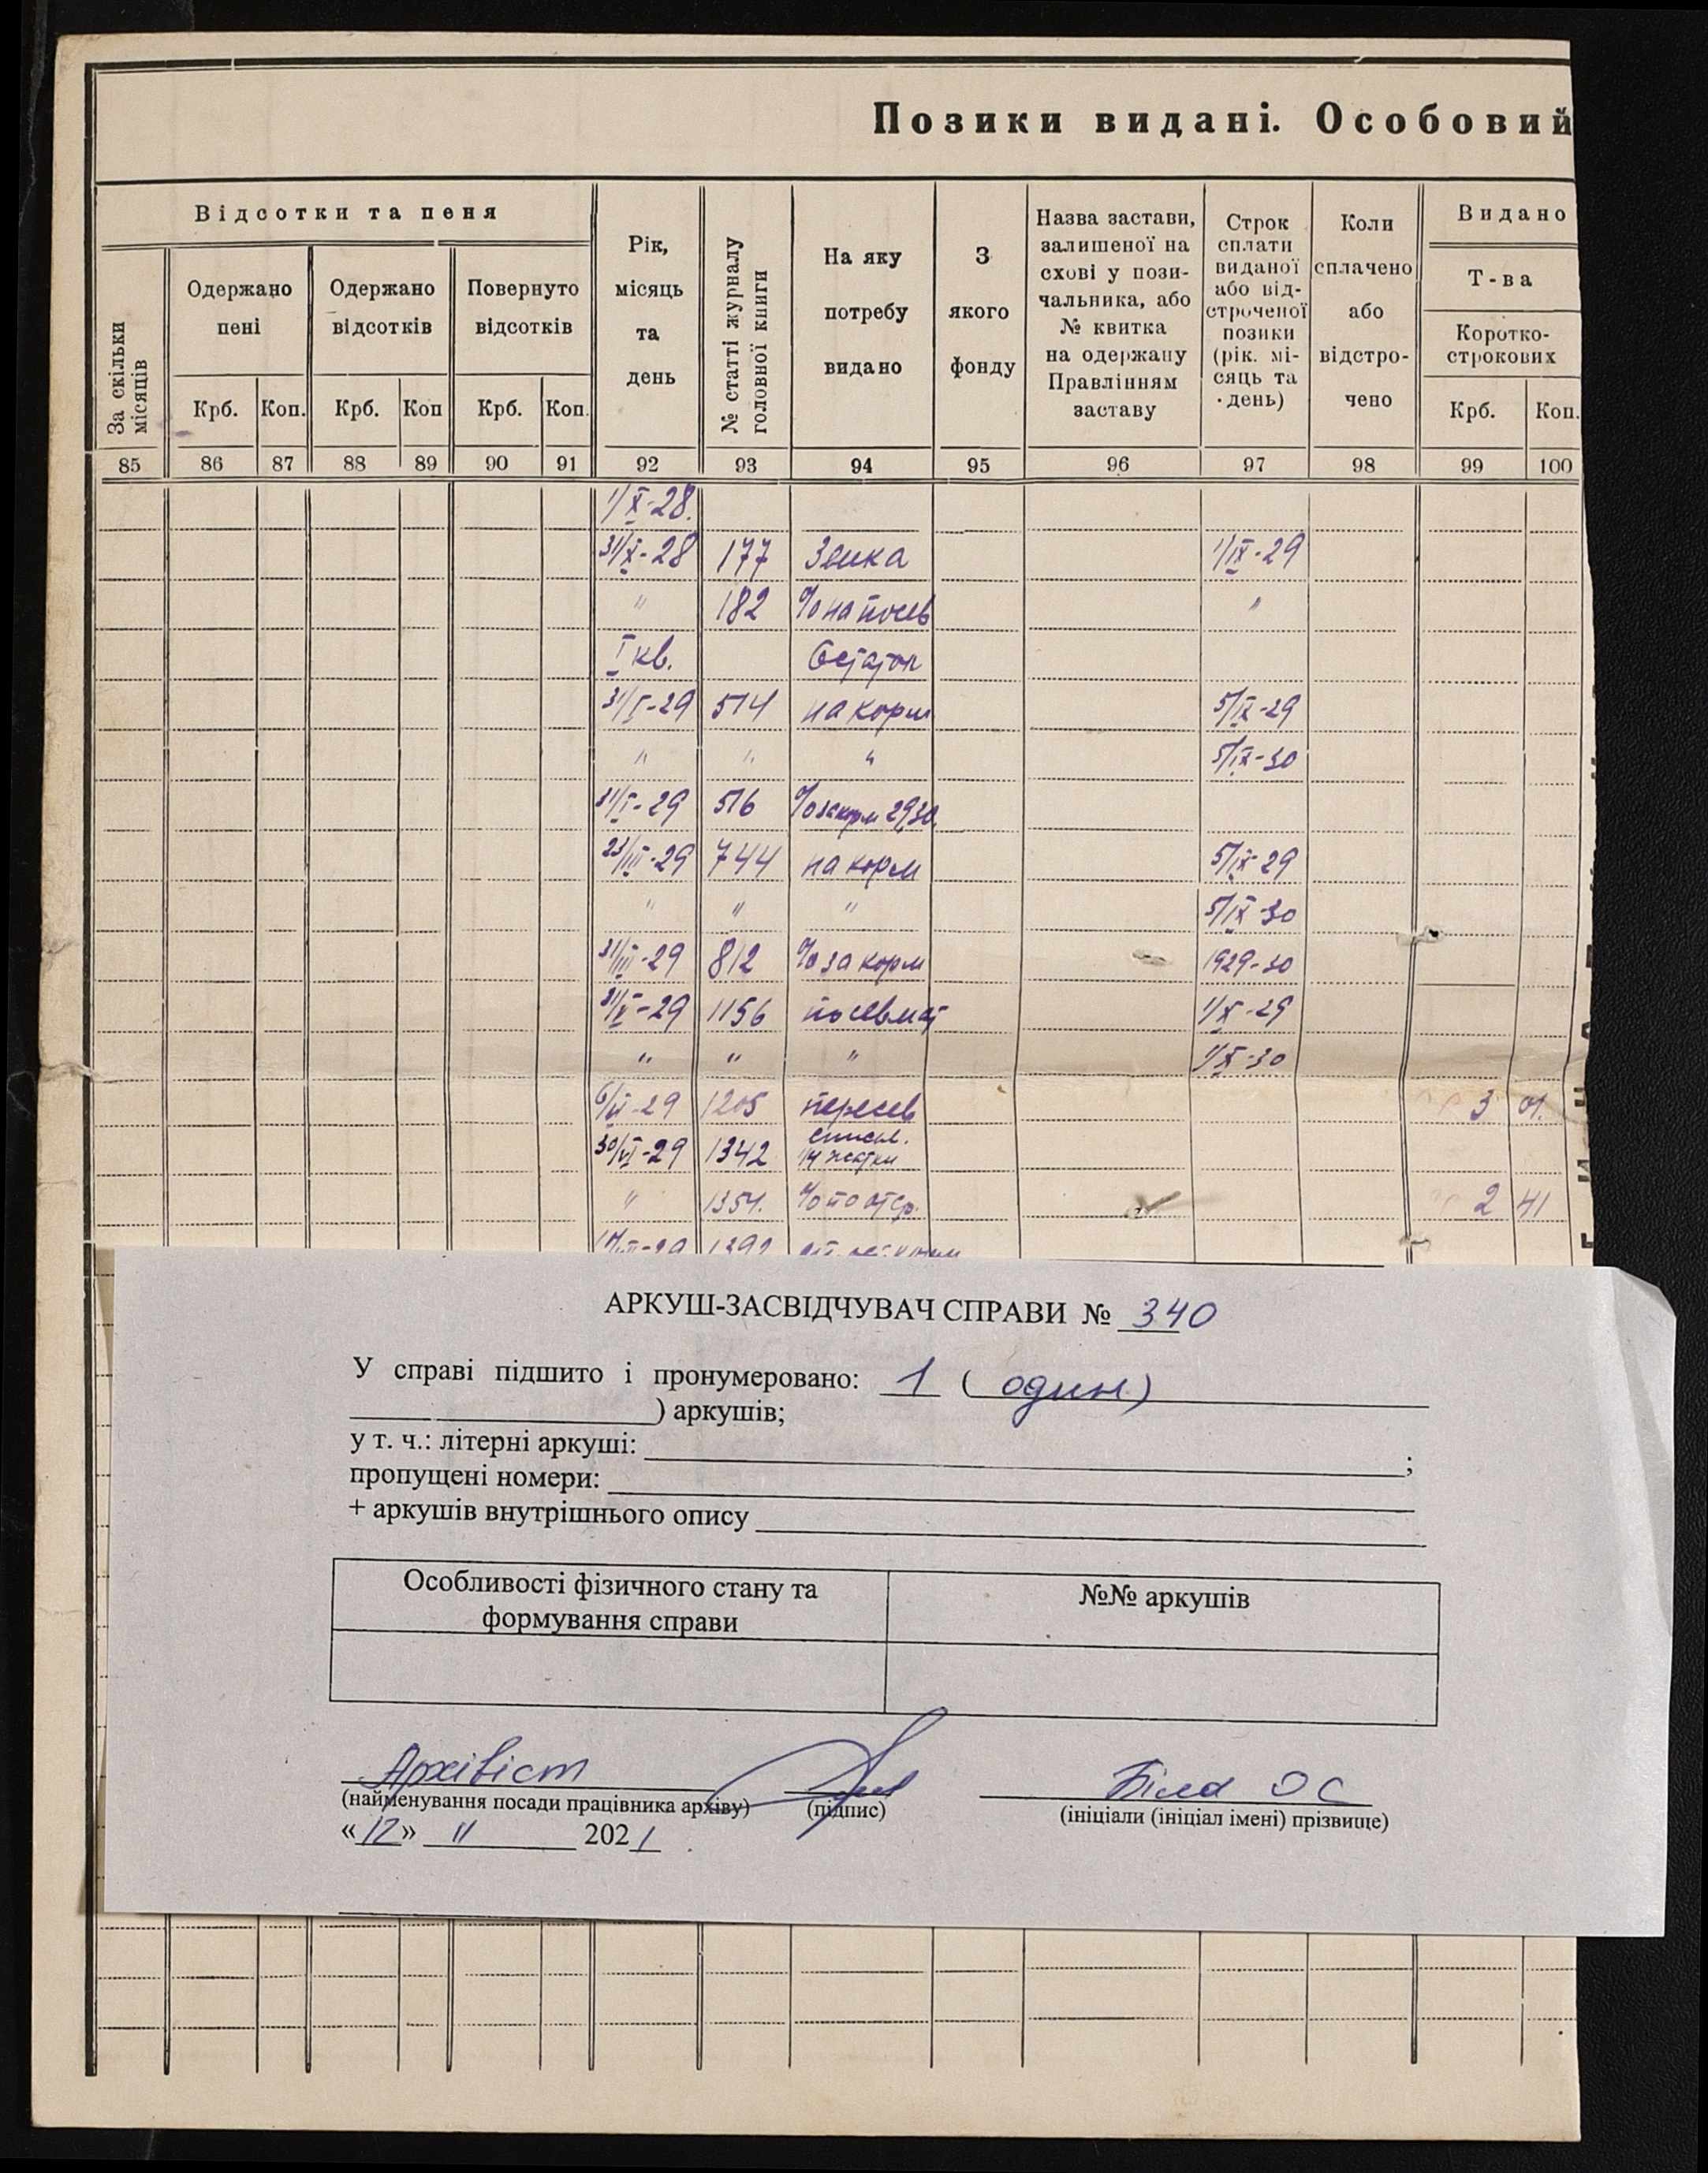 Позики видані. Особовий
Відсотки та пеня
За скільки місяців
Одержано пені
Одержано відсотків
Повернуто відсотків
Рік, місяць та день
№ статті журналу головної книги
На яку потребу видано
З якого фонду
Назва застави, залишеної на схові у позичальника, або № квитка на одержану Правлінням заставу
Строк сплати виданої або відстроченої позики (рік. місяць та день)
Коли сплачено або відстрочено
Видано
Т-ва
Коротко-строкових
Крб. Коп. Крб. Коп Крб. Коп. Крб. Коп.
85 86 87 88 89 90 91 92 93 94 95 96 97 98 99 100
1/X-28.
31/X-28 177 1/IX-29
" 182 % на посев "
I кв.
31/I-29 514 на корм 5/IX-29
" " " 5/IX-30
31/I-29 516 % за корм 29,30.
23/III-29 744 на корм 5/IX-29
" " " 5/IX-30
31/III-29 812 % за корм 1929-30
31/V-29 1156 посевмат 1/X-29
" " " 1/X-30
6/VI-29 1205 пересев 3 01.
30/VI-29 1342
" 1354. % по отср. 2 41
АРКУШ-ЗАСВІДЧУВАЧ СПРАВИ № 340
У справі підшито і пронумеровано: 1 ( один)
) аркушів;
у т. ч.: літерні аркуші: ;
пропущені номери:
+ аркушів внутрішнього опису
Особливості фізичного стану та формування справи
№№ аркушів
Архівіст Біла О С
(найменування посади працівника архіву) (підпис) (ініціали (ініціал імені) прізвище)
«12» 11 2021